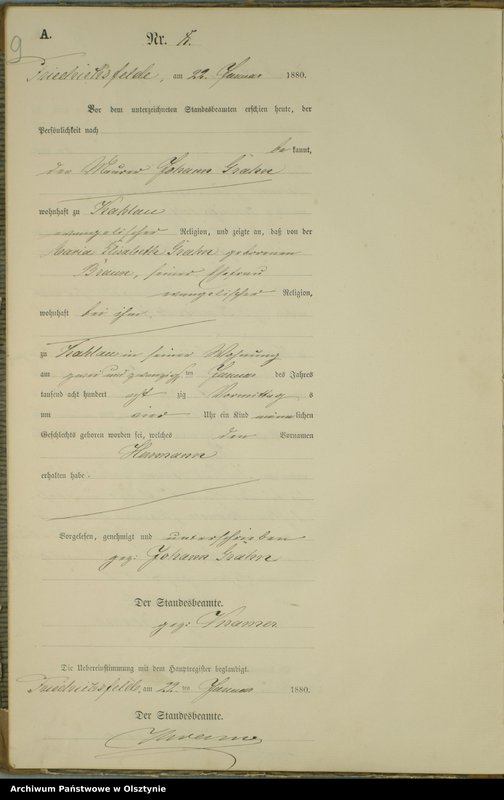 9
A.
Nr. 8.
Friedrichsfelde, am 22. Januar 1880.
Vor dem unterzeichneten Standesbeamten erschien heute, der
Persönlichkeit nach
be kannt,
der Maurer Johann Grahn
wohnhaft zu Kahlau
evangelischer Religion, und zeigte an, daß von der
Maria Elisabeth Grahn geborenen
Braun, seiner Ehefrau
evangelischer Religion,
wohnhaft bei ihm
zu Kahlau in seiner Wohnung
am zwei und zwanzigsten Januar des Jahres
tausend acht hundert acht zig Vormittags
um vier Uhr ein Kind männlichen
Geschlechts geboren worden sei, welches den Vornamen
Hermann
erhalten habe.
Vorgelesen, genehmigt und unterschrieben
gez: Johann Grahn
Der Standesbeamte.
gez:
Die Uebereinstimmung mit dem Hauptregister beglaubigt.
Friedrichsfelde, am 22. ten Januar 1880.
Der Standesbeamte.
Archiwum Państwowe w Olsztynie